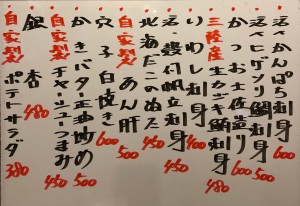 活〆かんぱち刺身 600
活〆ヒゲソリ鯛刺身 500
かつお土佐造り 600
三陸産生カキ刺身 480
いわし刺身 400
活〆帆立刺身 450
北海だこのぬた 450
自家製あん肝 500
穴子白焼き 600
かきバター正油炒め 500
自家製チャーシューつまみ 450
銀杏 480
自家製ポテトサラダ 380